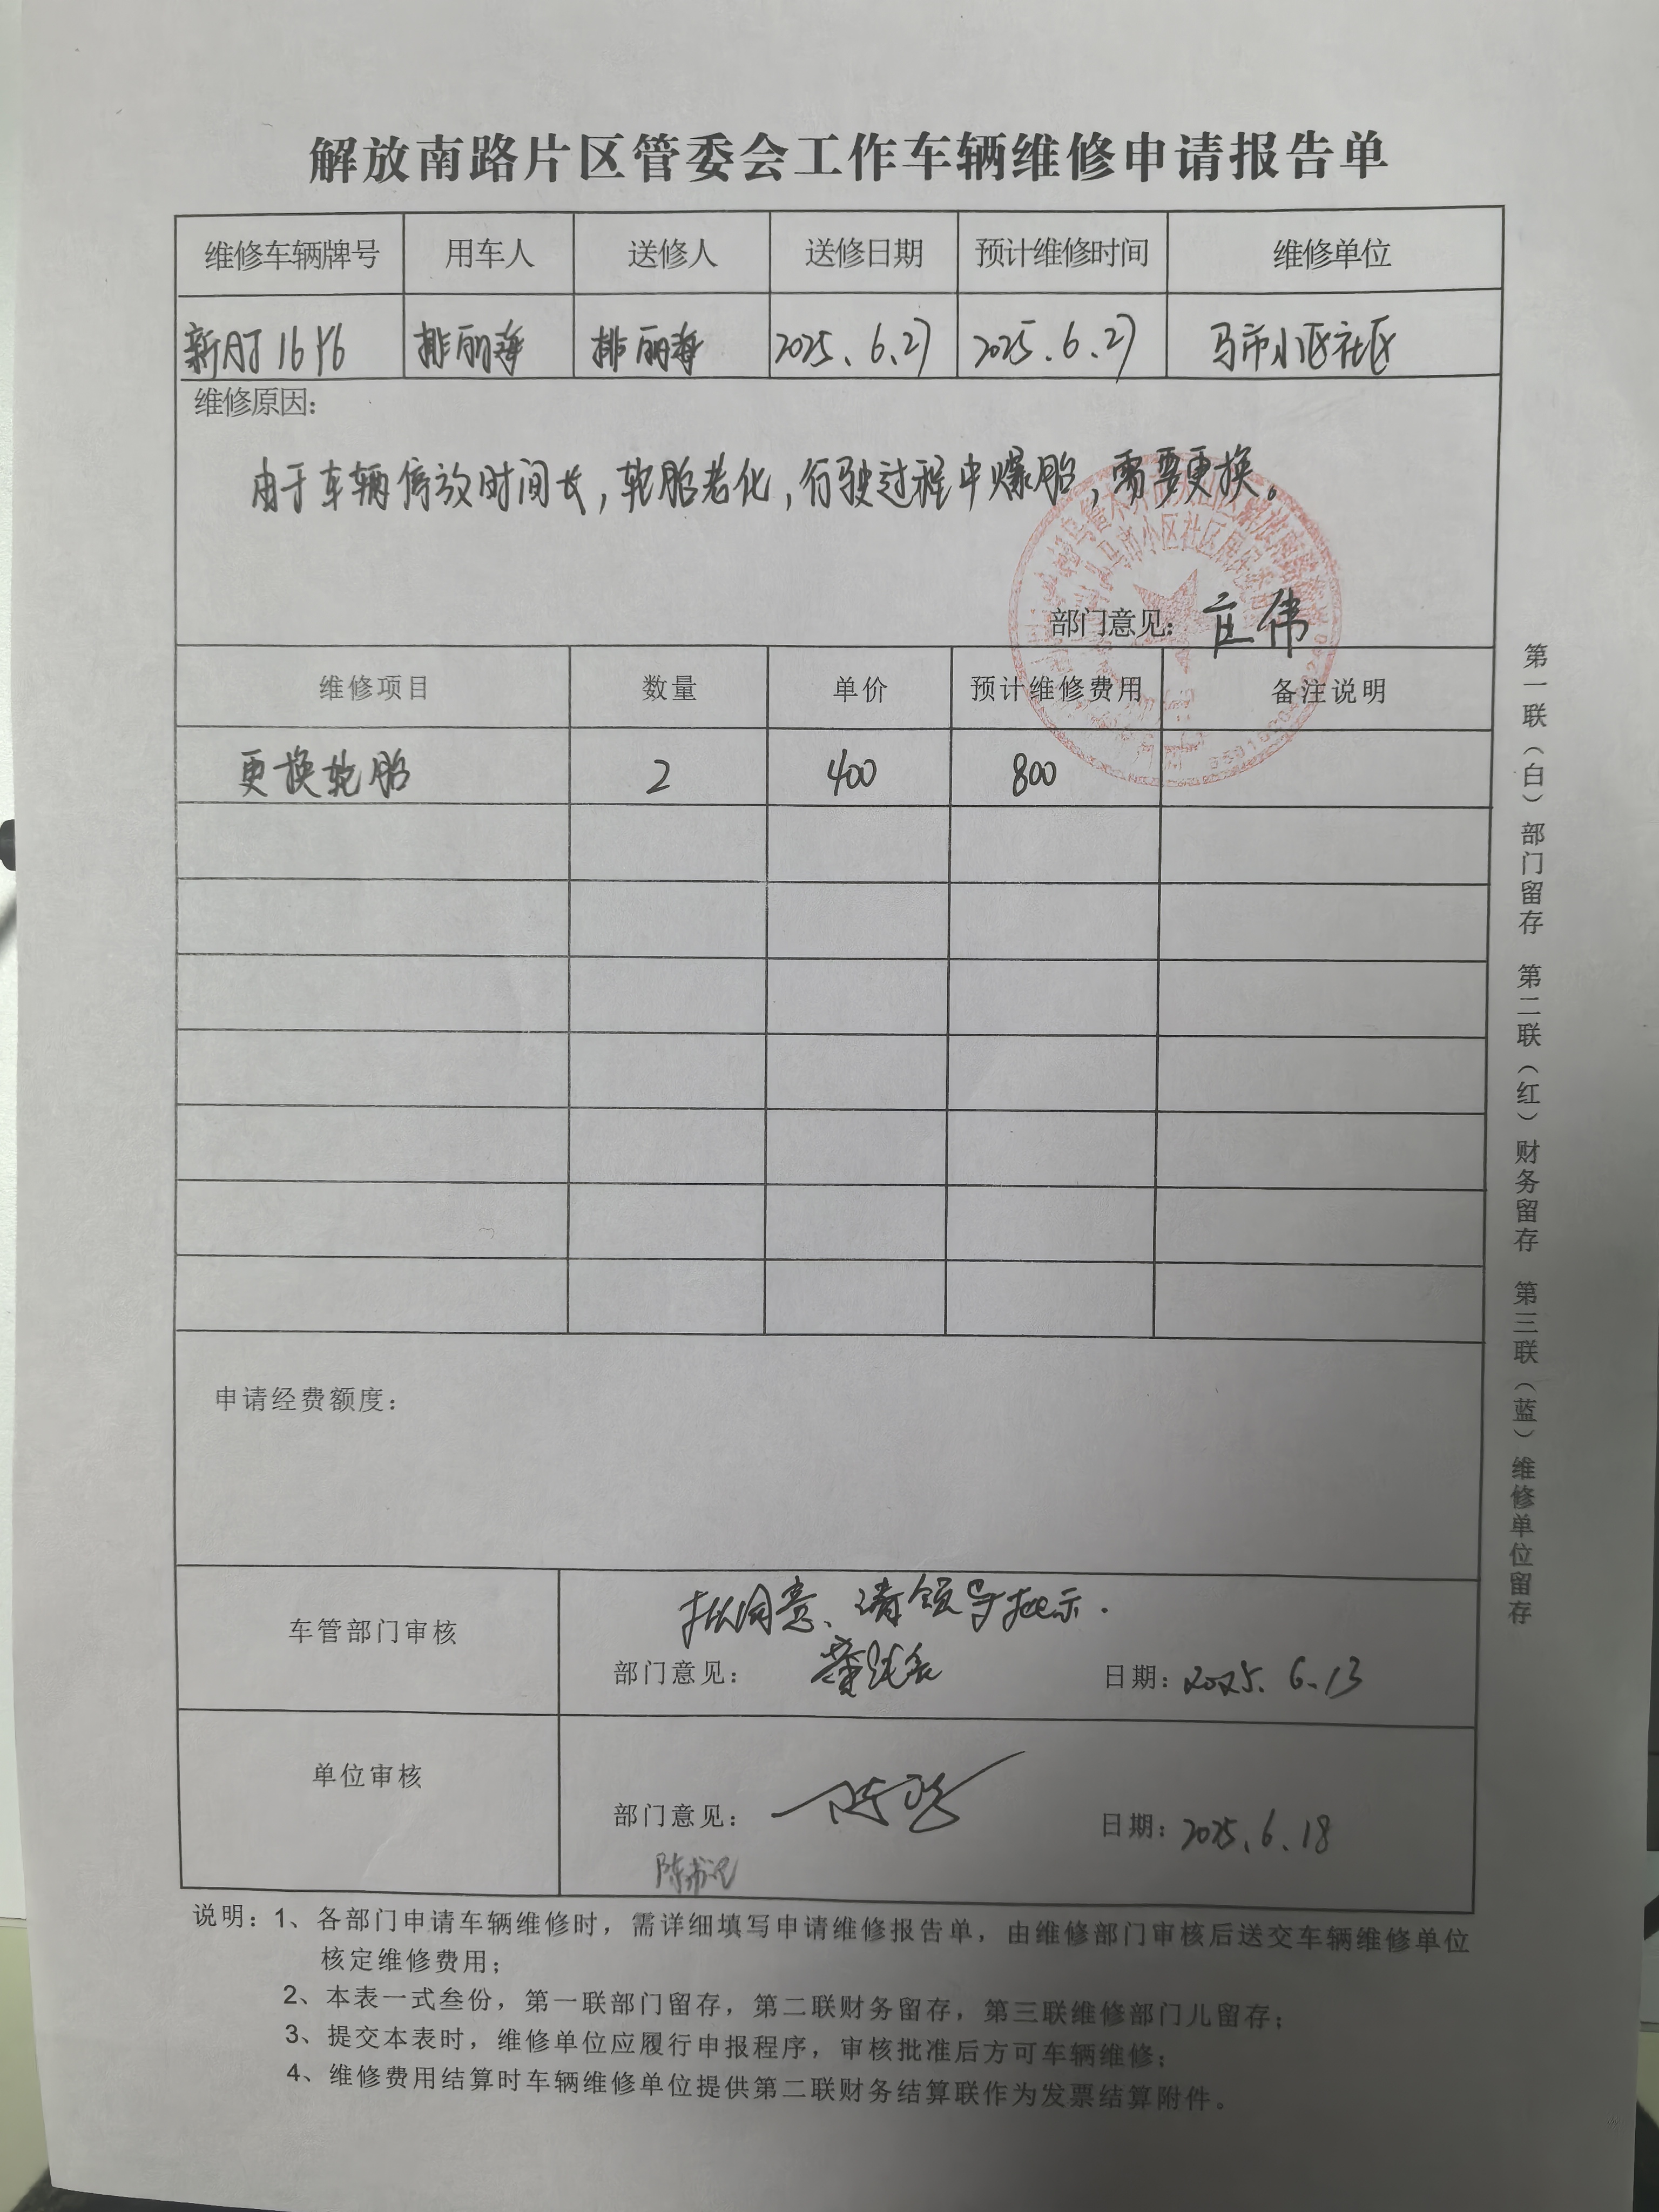 解放南路片区管委会工作车辆维修申请报告单
维修车辆牌号 用车人 送修人 送修日期 预计维修时间 维修单位
新A 16Y6 排丽海 排丽海 2025.6.27 2025.6.27 马市小区社区
维修原因：
由于车辆停放时间长，轮胎老化，行驶过程中爆胎，需要更换。
马市小区社区居民
部门意见： 伟
维修项目 数量 单价 预计维修费用 备注说明
更换轮胎 2 400 800
申请经费额度：
拟同意、请领导批示.
车管部门审核
部门意见： 日期：2025.6.13
单位审核
部门意见： 陈 日期：2025.6.18
陈书记
说明：1、各部门申请车辆维修时，需详细填写申请维修报告单，由维修部门审核后送交车辆维修单位
核定维修费用；
2、本表一式叁份，第一联部门留存，第二联财务留存，第三联维修部门儿留存；
3、提交本表时，维修单位应履行申报程序，审核批准后方可车辆维修；
4、维修费用结算时车辆维修单位提供第二联财务结算联作为发票结算附件。
第一联（白）部门留存 第二联（红）财务留存 第三联（蓝）维修单位留存